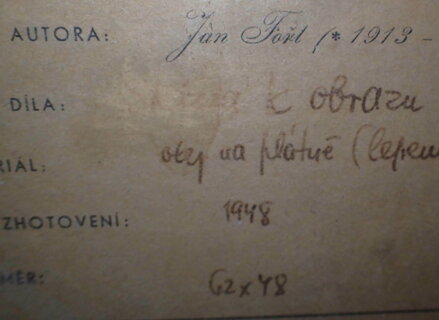 AUTORA: Ján Fořt (* 1913 -
DÍLA: k obrazu
RIÁL: olej na plátně (lepen
ZHOTOVENÍ: 1948
MĚR: 62x48